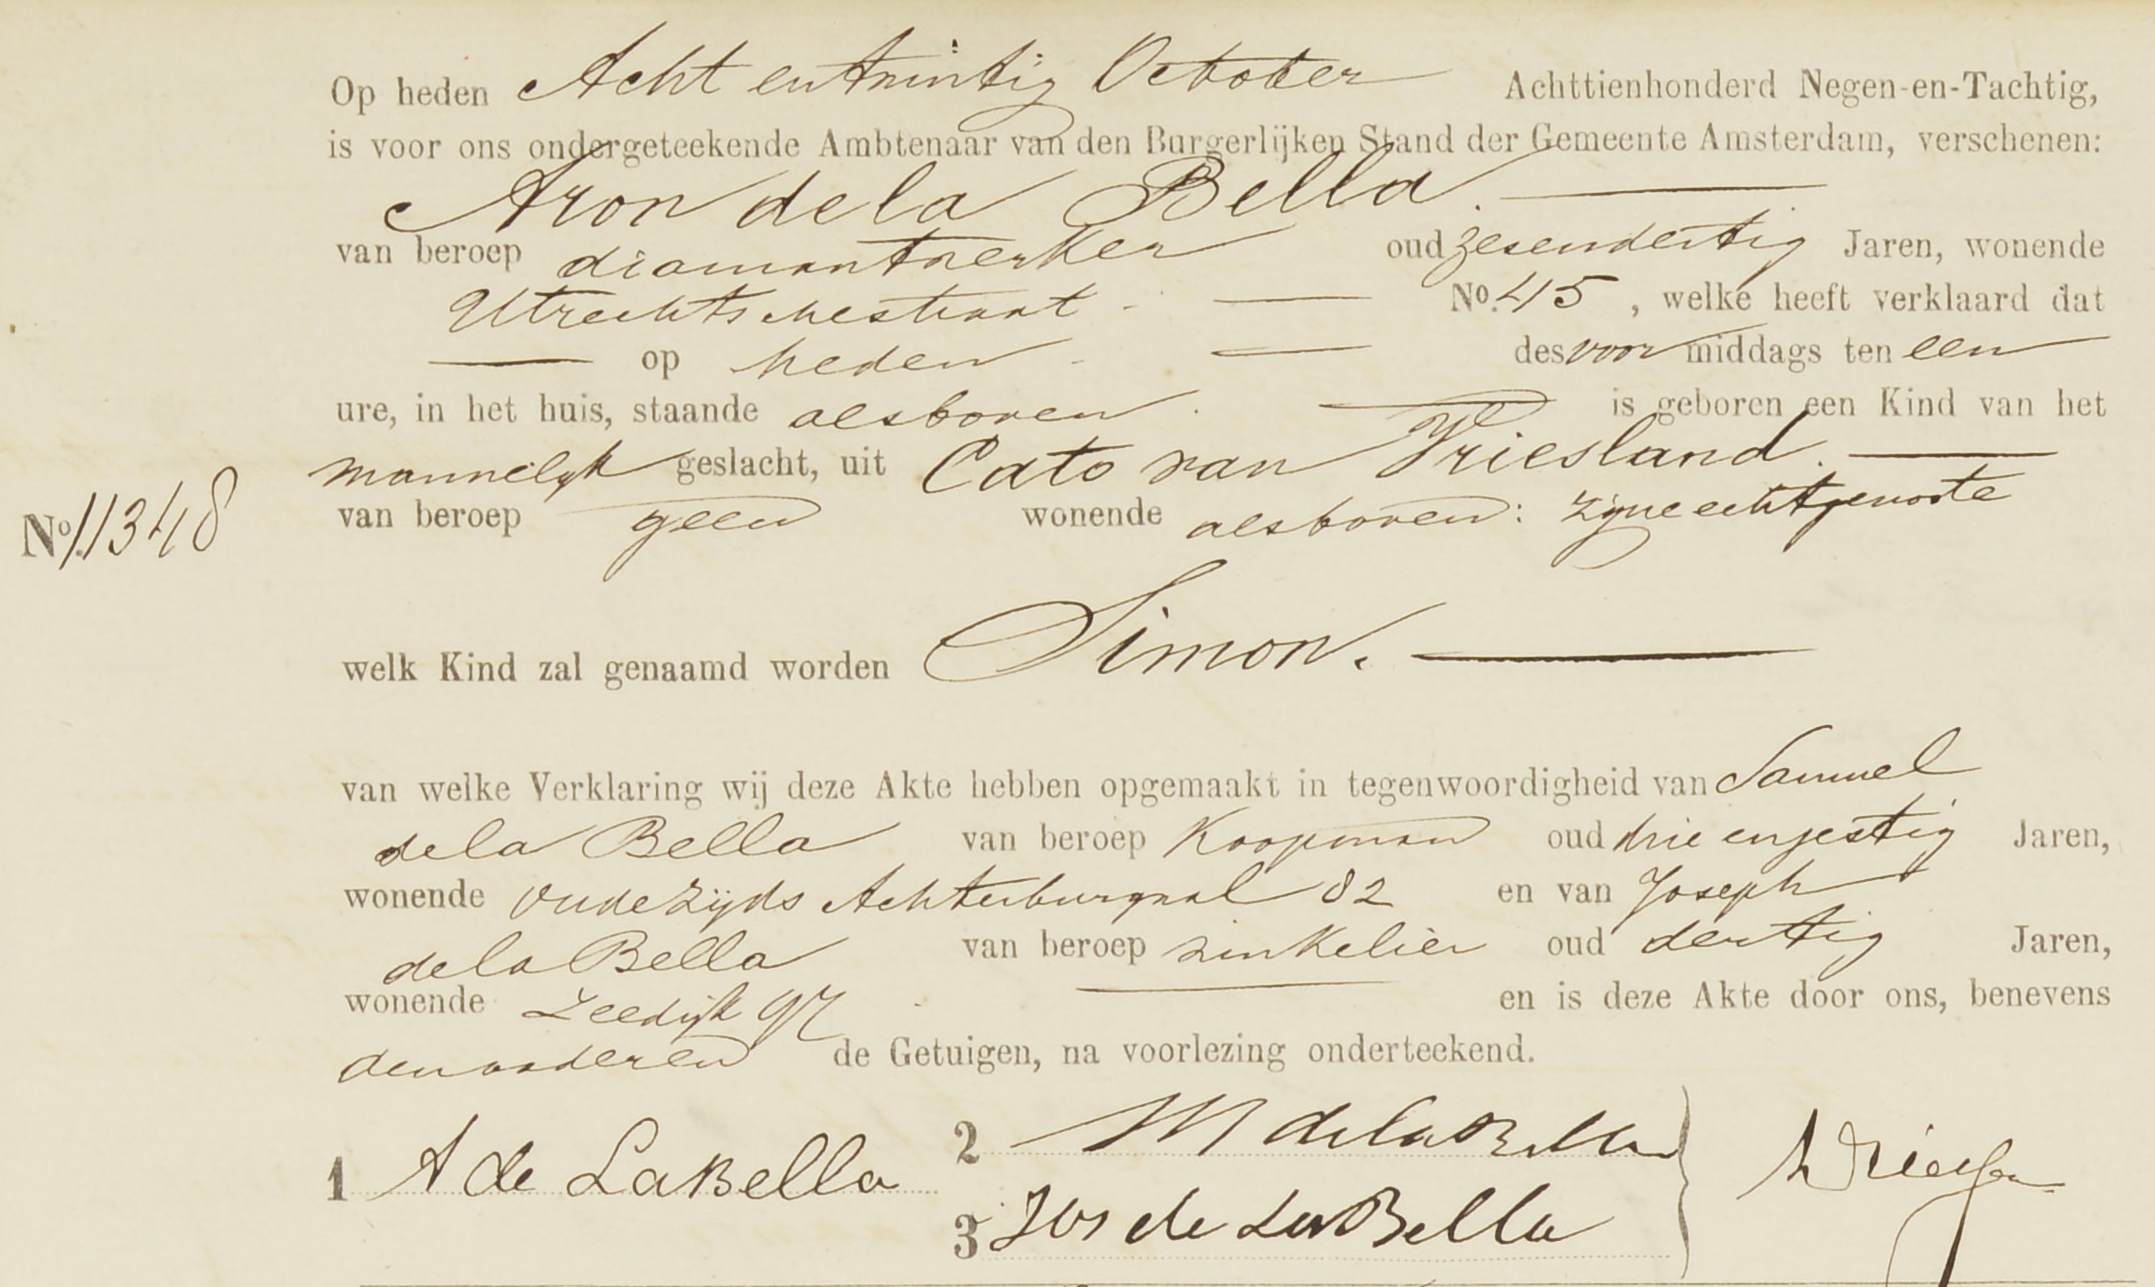 Op heden Acht en twintig October Achttienhonderd Negen-en-Tachtig,
is voor ons ondergeteekende Ambtenaar van den Burgerlijken Stand der Gemeente Amsterdam, verschenen:
Aron de la Bella.
van beroep diamantwerker oud zesendertig Jaren, wonende
Utrechtschestraat No. 45, welke heeft verklaard dat
op heden des voormiddags ten een
ure, in het huis, staande alsboven is geboren een Kind van het
mannelijk geslacht, uit Cato van Vriesland.
No. 11348
van beroep geen wonende alsboven: zijne echtgenoote
welk Kind zal genaamd worden Simon.
van welke Verklaring wij deze Akte hebben opgemaakt in tegenwoordigheid van Samuel
de la Bella van beroep Koopman oud drie en zestig Jaren,
wonende Oudezijds Achterburgwal 82 en van Joseph
de la Bella van beroep winkelier oud dertig Jaren,
wonende Zeedijk 97 en is deze Akte door ons, benevens
den vaderen de Getuigen, na voorlezing onderteekend.
1 A de LaBella
2 M de la Bella
3 Jos de La Bella